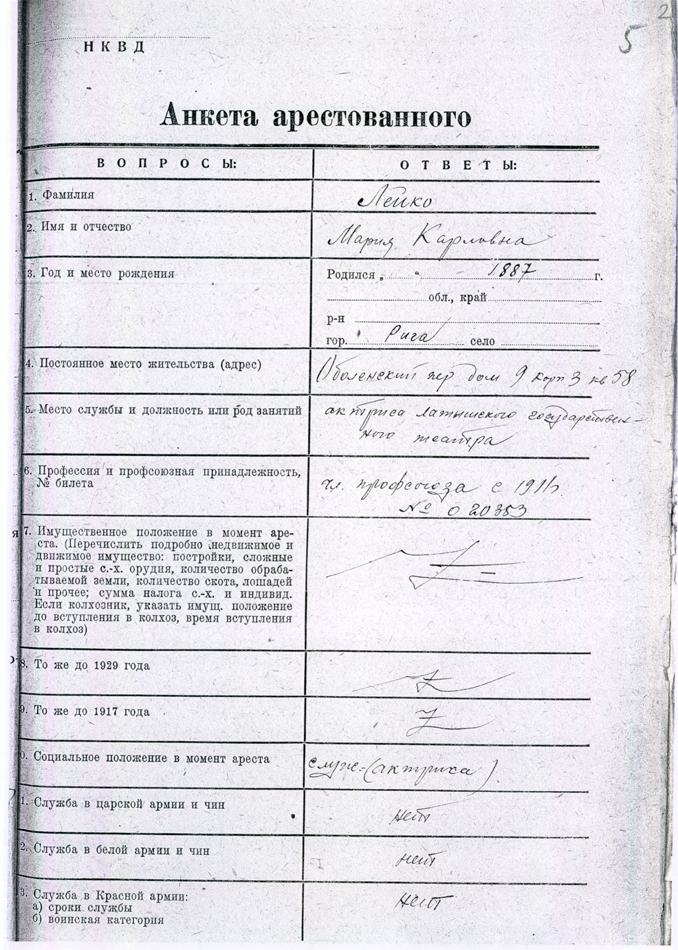 2
5
НКВД
Анкета арестованного
ВОПРОСЫ: ОТВЕТЫ:
1. Фамилия Лейко
2. Имя и отчество Мария Карловна
3. Год и место рождения Родился „ “ 1887 г.
обл., край
р-н
гор. Рига село
4. Постоянное место жительства (адрес) Оболенский пер дом 9 корп 3 кв 58
5. Место службы и должность или род занятий актриса латышского государствен-
ного театра
6. Профессия и профсоюзная принадлежность, чл. профсоюза с
№ билета № 020353
7. Имущественное положение в момент аре-
ста. (Перечислить подробно недвижимое и
движимое имущество: постройки, сложные
и простые с.-х. орудия, количество обраба-
тываемой земли, количество скота, лошадей
и прочее; сумма налога с.-х. и индивид.
Если колхозник, указать имущ. положение
до вступления в колхоз, время вступления
в колхоз)
8. То же до 1929 года
9. То же до 1917 года
0. Социальное положение в момент ареста служ-(актриса).
1. Служба в царской армии и чин нет
2. Служба в белой армии и чин нет
3. Служба в Красной армии: нет
а) сроки службы
б) воинская категория